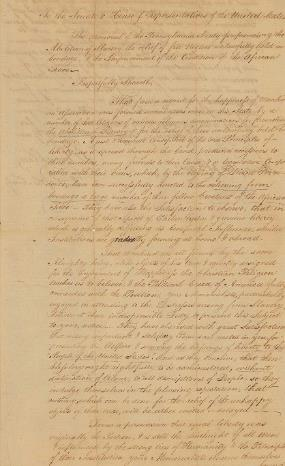 To the Senate & House of Representatives of the United States
The Memorial of the Pennsylvania Society for promoting the
Abolition of Slavery, the relief of free Negroes unlawfully held in
bondage, & the Improvement of the Condition of the African
Race
Respectfully Sheweth,
That from a regard for the happiness of Mankind
an Association was formed several years since in this State by a
number of her Citizens of various religious denominations for promoting
the Abolition of Slavery & for the relief of those unlawfully held in
bondage. A just & accurate Conception of the true Principles of
liberty, as it spread through the land, produced accessions to
their numbers, many friends to their Cause, & a legislative Co-ope
ration with their views, which, by the blessing of Divine Provi
dence, have been successfully directed to the relieving from
bondage a large number of their fellow Creatures of the African
Race. They have also the Satisfaction to observe, that in
consequence of that Spirit of Philanthropy & genuine liberty
which is generally diffusing its beneficial Influence, similar
Institutions are forming at home & abroad.
That mankind are all formed by the same
Almighty being, alike objects of his Care & equally designed
for the Enjoyment of Happiness the Christian Religion
teaches us to believe & the Political Creed of Americans fully
coincides with the Position. Your Memorialists, particularly
engaged in attending to the Distresses arising from Slavery,
believe it their indispensible Duty to present this Subject
to your notice. They have observed with great Satisfaction
that many important & salutary Powers are vested in you for
promoting the Welfare & securing the blessings of liberty to the
People of the United States. And as they conceive, that these
blessings ought rightfully to be administered, without
distinction of Colour, to all descriptions of People, so they
indulge themselves in the pleasing expectation, that
nothing, which can be done for the relief of the unhappy
objects of their care, will be either omitted or delayed
From a persuasion that equal liberty was
originally the Portion, & is still the birthright of all men
& influenced by the strong ties of Humanity & the Principles
of their Institution, your Memorialists conceive themselves